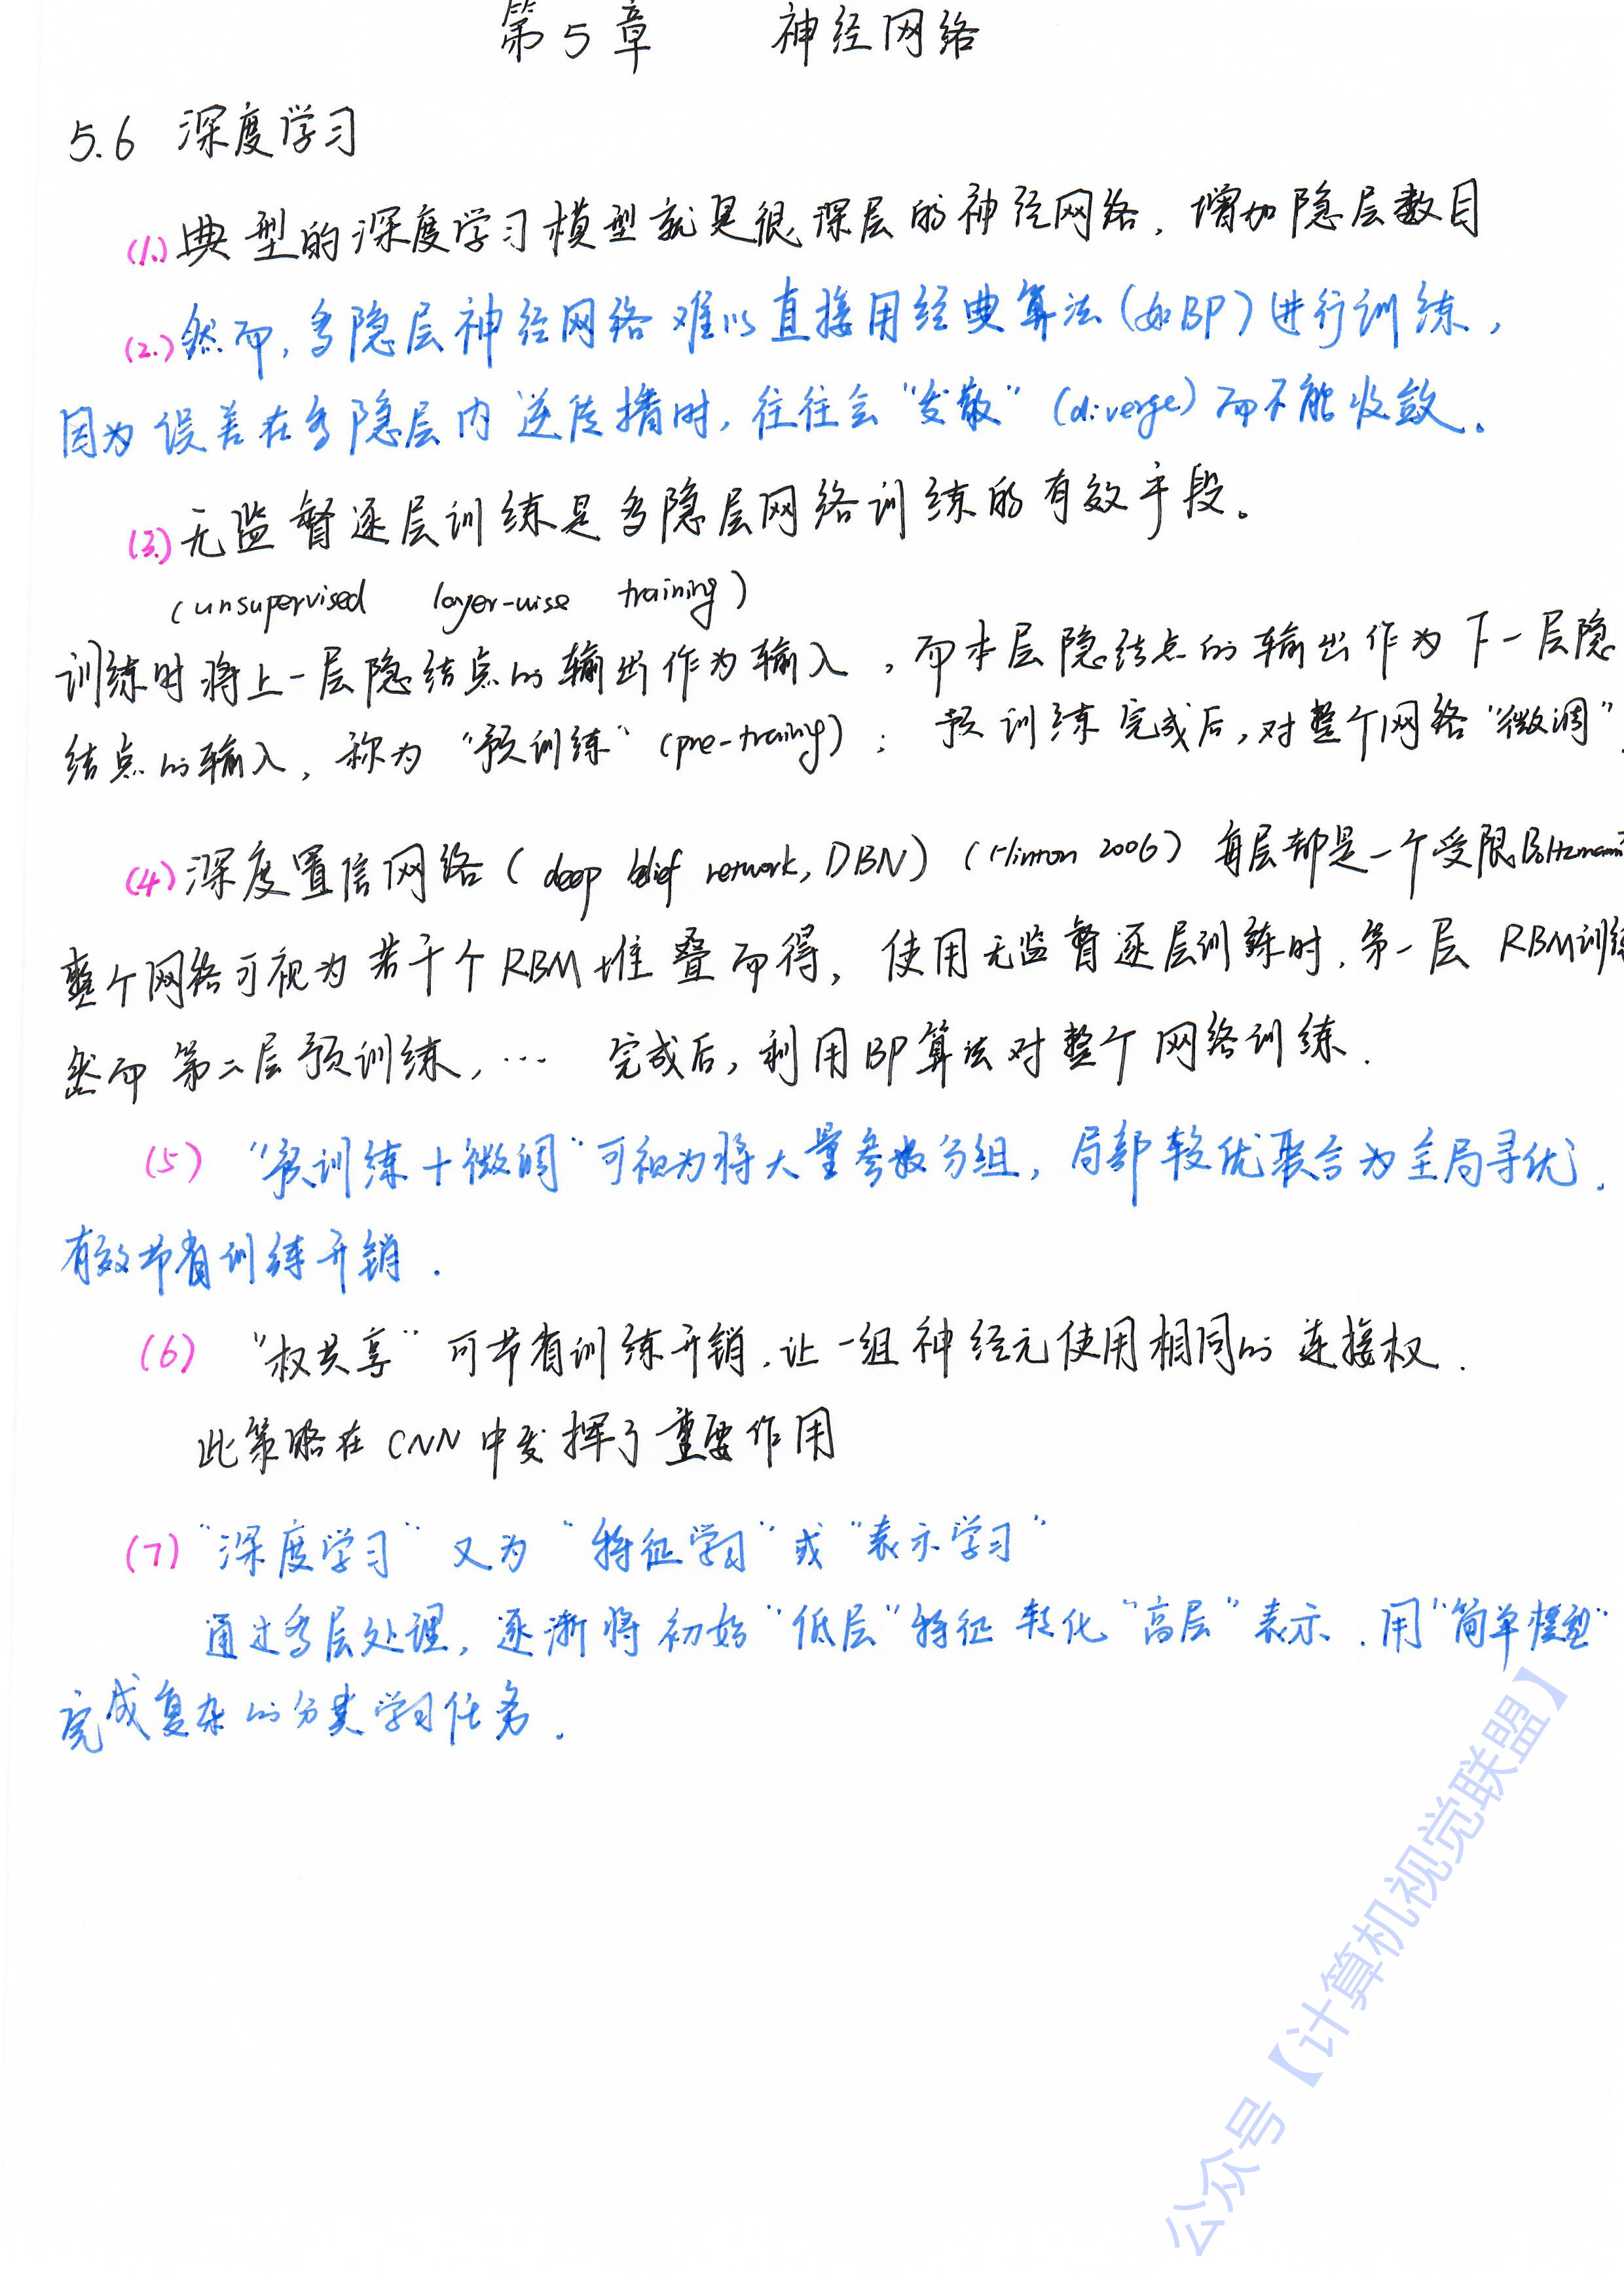 第5章 神经网络
5.6 深度学习
(1.) 典型的深度学习模型就是很深层的神经网络. 增加隐层数目
(2.) 然而, 多隐层神经网络难以直接用经典算法(如BP)进行训练,
因为误差在多隐层内逆传播时, 往往会"发散"(diverge)而不能收敛。
(3.) 无监督逐层训练是多隐层网络训练的有效手段。
(unsupervised layer-wise training)
训练时将上一层隐结点的输出作为输入, 而本层隐结点的输出作为下一层隐
结点的输入, 称为"预训练"(pre-training); 预训练完成后, 对整个网络"微调"
(4) 深度置信网络(deep belief network, DBN)(Hinton 2006) 每层都是一个受限Boltzmann
整个网络可视为若干个RBM堆叠而得, 使用无监督逐层训练时. 第一层 RBM训练
然而第二层预训练, … 完成后, 利用BP算法对整个网络训练.
(5) "预训练+微调"可视为将大量参数分组, 局部较优聚合为全局寻优.
有效节省训练开销.
(6) "权共享"可节省训练开销. 让一组神经元使用相同的连接权.
此策略在CNN中发挥了重要作用
(7) "深度学习"又为"特征学习"或"表示学习"
通过多层处理, 逐渐将初始"低层"特征转化"高层"表示. 用"简单模型"
完成复杂的分类学习任务.
公众号【计算机视觉联盟】